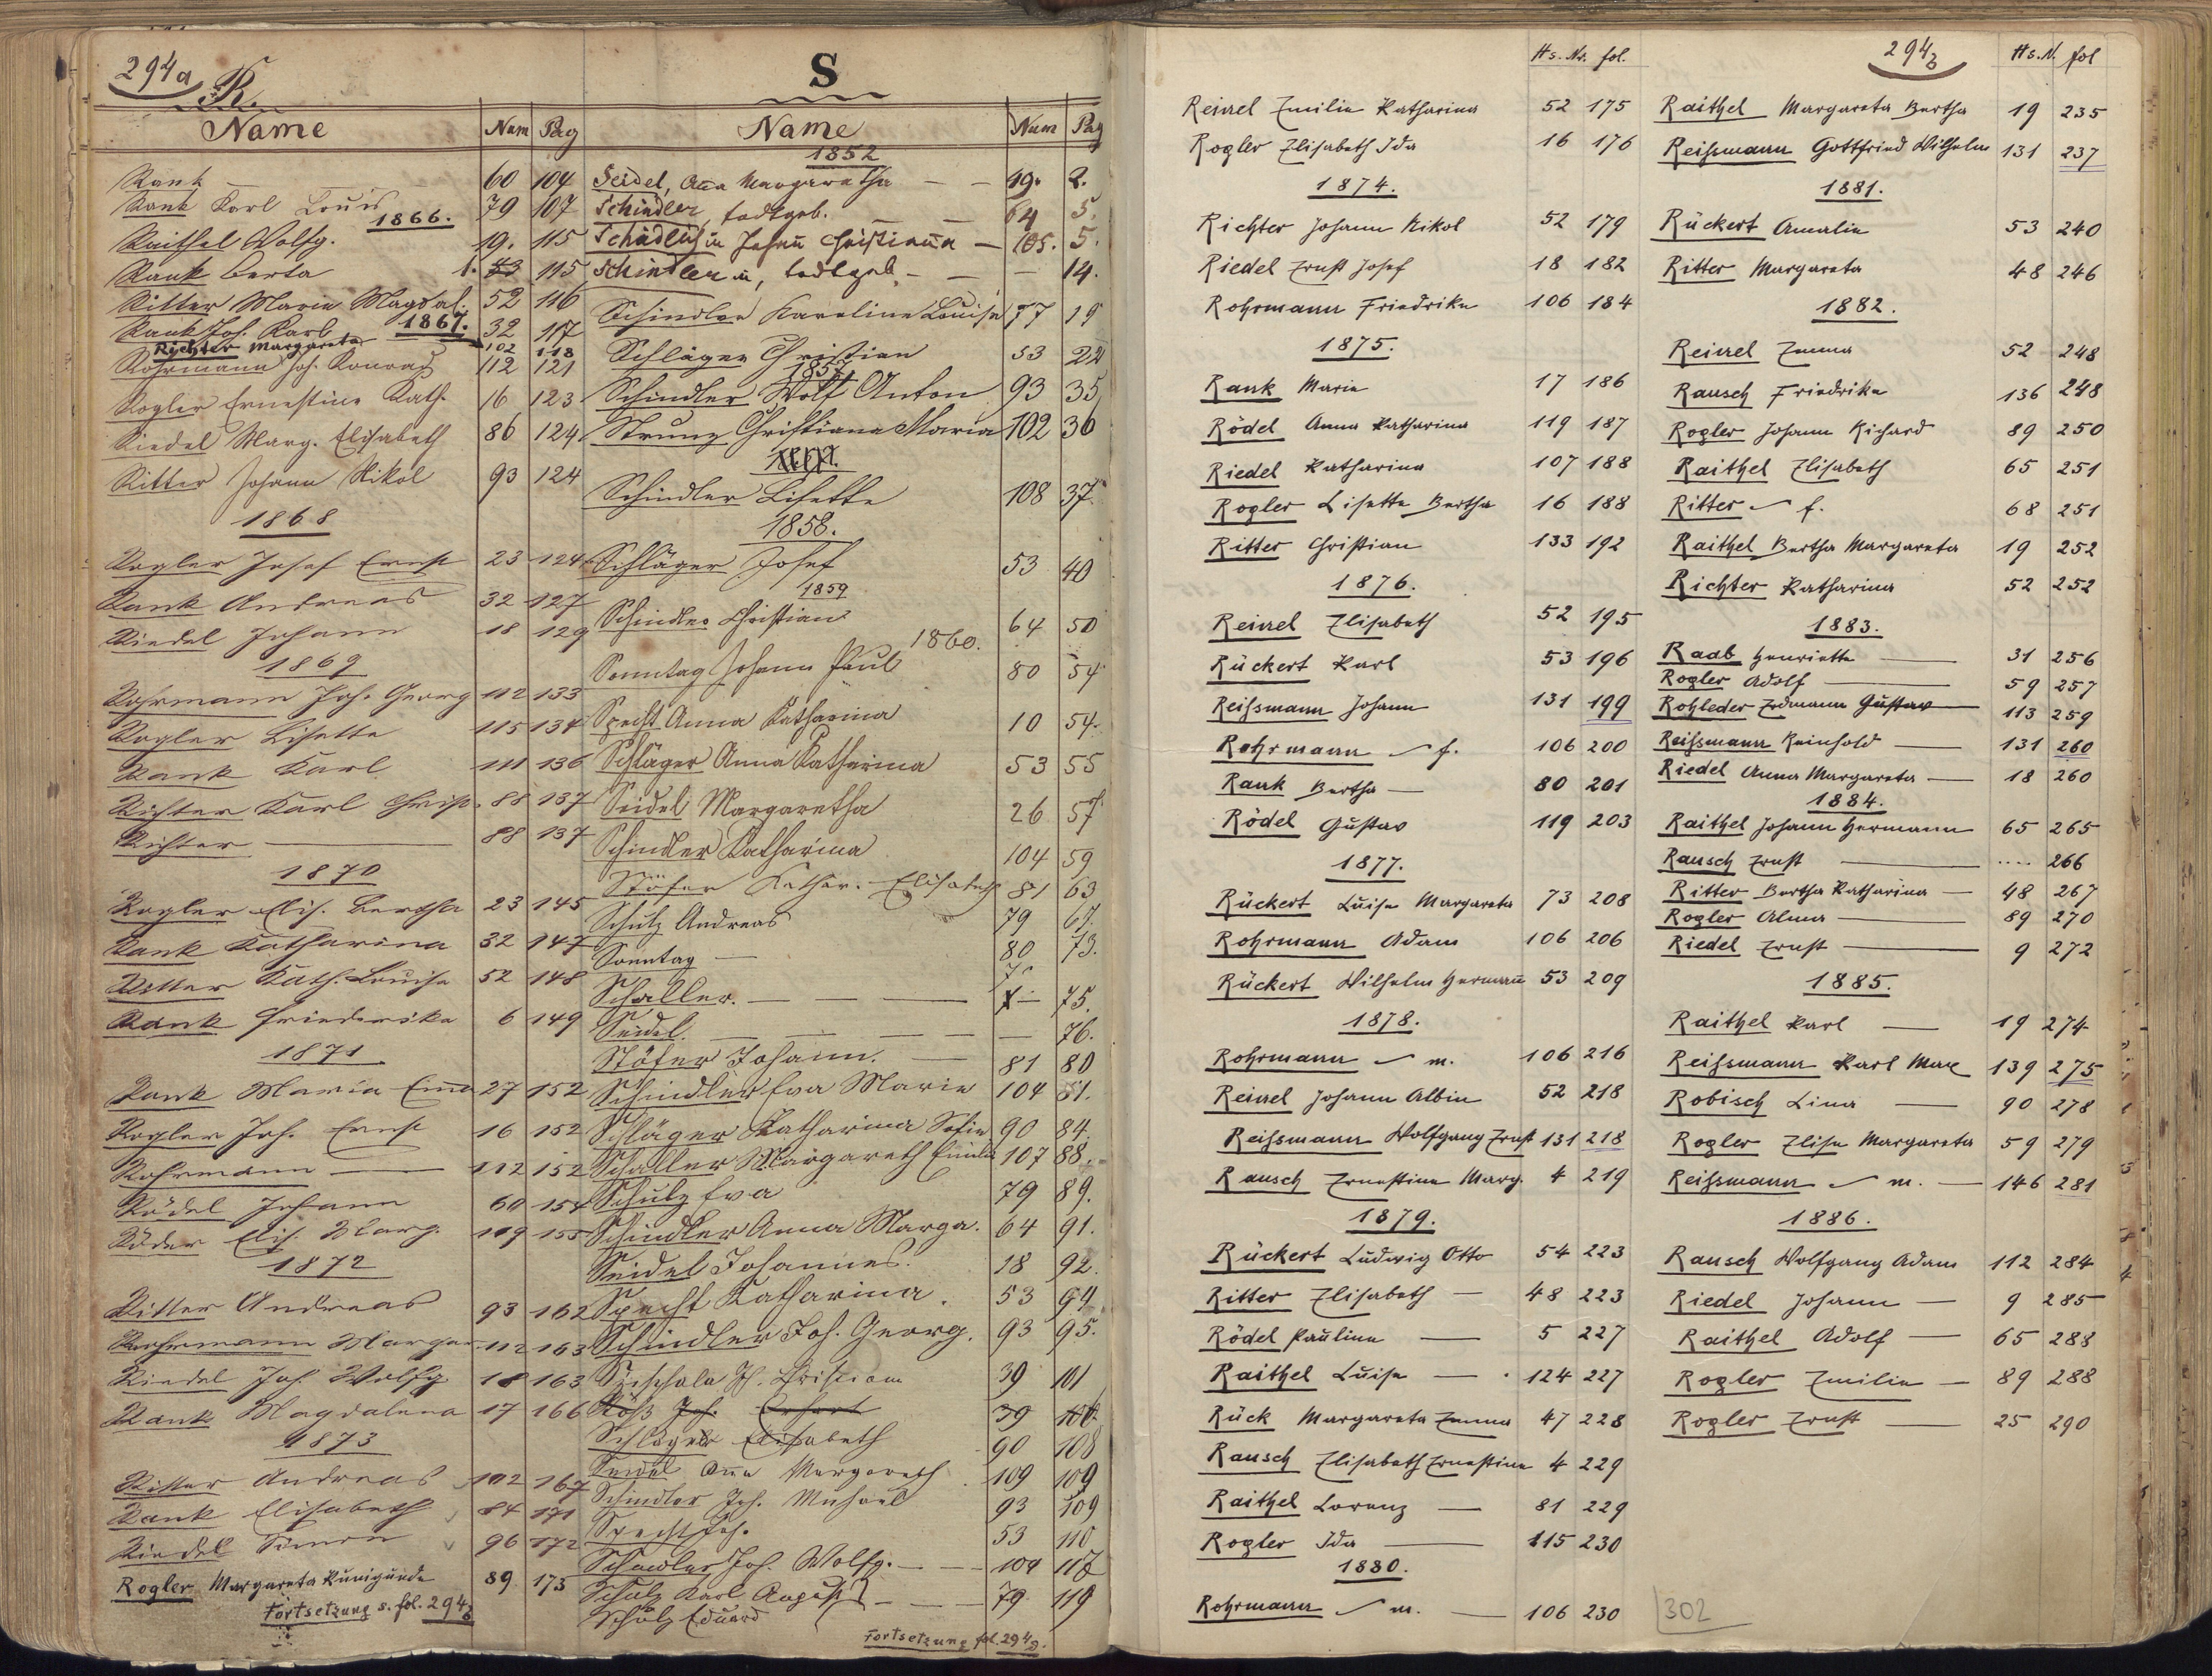 294a
R.
Name Num Pag
Rank — 60 104
Rank Karl Louis 79 107
1866.
Raithel Wolfg. 19. 115
Rank Berta 1. 43 115
Ritter Maria Magdal. 52 116
Rank Joh. Karl 32 117
1867.
Richter Margareta 102 118
Rohrmann Joh. Konrad 112 121
Rogler Ernestine Kath. 16 123
Riedel Marg. Elisabeth 86 124
Ritter Johann Nikol 93 124
1868
Rogler Josef Ernst 23 124
Rank Andreas 32 127
Riedel Johann 18 129
1869
Rohrmann Joh. Georg 112 133
Rogler Lisette 115 134
Rank Karl 111 136
Richter Karl Christ. 88 137
Richter — 88 137
1870
Rogler Elis. Bertha 23 145
Rank Katharina 32 147
Ritter Kath. Louise 52 148
Rank Friederika 6 149
1871
Rank Maria Emma 27 152
Rogler Joh. Ernst 16 152
Rohrmann — 112 152
Rödel Johann 60 154
Röder Elis. Marg. 119 155
1872
Ritter Andreas 93 162
Rohrmann Margar 112 163
Riedel Joh. Wolfg 18 163
Rank Magdalena 17 166
1873
Ritter Andreas 102 167
Rank Elisabeth 84 171
Riedel Simon 96 172
Rogler Margareta Kunigunde 89 173
Fortsetzung s. fol. 294b
S
Name Num Pag
1852
Seidel, Anna Margaretha — — 49. 2.
Schindler, todtgeb. — — 64 5.
Schädlich in Johann Christiana — 105. 5.
Schindler in, todtgeb. — — 14.
Schindler Karoline Louise 77 19
Schläger Christian 53 22
1857
Schindler Wolf Anton 93 35
Strunz Christiana Maria 102 36
Schindler Lisette 108 37.
1858.
Schläger Josef 53 40
1859
Schindler Christian 64 50
1860.
Sonntag Johann Paul 80 54
Specht Anna Katharina 10 54.
Schläger Anna Katharina 53 55
Seidel Margaretha 26 57
Schindler Katharina 104 59
Stöfer Kathar. Elisabeth 81 63
Schulz Andreas 79 67.
Sonntag — 80 73.
Schaller. — — — 75.
Seidel. — — — 76.
Stöfer Johann. — 81 80
Schindler Eva Marie 104 81.
Schläger Katharina Sofie 90 84.
Schaller Margareth Emilie 107 88.
Schulz Eva 79 89.
Schindler Anna Marga. 64 91.
Seidel Johannes. 18 92.
Specht Katharina. 53 94.
Schindler Joh. Georg. 93 95.
39 101
Röß Joh. Erhart 39 106
Schläger Elisabeth 90 108
Seidel Ana Margareth 109 109
Schindler Joh. Michael 93 109
Specht Joh. 53 110
Schindler Joh. Wolfg. — 104 117
Schulz Karl August — 79. 119
Schulz Eduard
Fortsetzung fol. 294g.
Hs. Nr. fol.
Reinel Emilie Katharina 52 175
Rogler Elisabeth Ida 16 176
1874.
Richter Johann Nikol 52 179
Riedel Ernst Josef 18 182
Rohrmann Friedrike 106 184
1875.
Rank Marie 17 186
Rödel Anna Katharina 119 187
Riedel Katharina 107 188
Rogler Lisette Bertha 16 188
Ritter Christian 133 192
1876.
Reinel Elisabeth 52 195
Rückert Karl 53 196
Reißmann Johann 131 199
Rohrmann — f. 106 200
Rank Bertha — 80 201
Rödel Gustav 119 203
1877.
Rückert Luise Margareta 73 208
Rohrmann Adam 106 206
Rückert Wilhelm Hermann 53 209
1878.
Rohrmann — m. 106 216
Reinel Johann Albin 52 218
Reißmann Wolfgang Ernst 131 218
Rausch Ernestine Marg. 4 219
1879.
Rückert Ludwig Otto 54 223
Ritter Elisabeth — 48 223
Rödel Pauline — 5 227
Raithel Luise — 124 227
Rück Margareta Emma 47 228
Rausch Elisabeth Ernestine 4 229
Raithel Lorenz — 81 229
Rogler Ida — 115 230
1880.
Rohrmann — m. — 106 230
294b
Hs. N. fol
Raithel Margareta Bertha 19 235
Reißmann Gottfried Wilhelm 131 237
1881.
Rückert Amalie 53 240
Ritter Margareta 48 246
1882.
Reinel Emma 52 248
Rausch Friedrike 136 248
Rogler Johann Richard 89 250
Raithel Elisabeth 65 251
Ritter — f. 68 251
Raithel Bertha Margareta 19 252
Richter Katharina 52 252
1883.
Raab Henriette — 31 256
Rogler Adolf — 59 257
Rohleder Erdmann Gustav 113 259
Reißmann Reinhold — 131 260
Riedel Anna Margareta — 18 260
1884.
Raithel Johann Hermann 65 265
Rausch Ernst — .... 266
Ritter Bertha Katharina — 48 267
Rogler Alma — 89 270
Riedel Ernst — 9 272
1885.
Raithel Karl — 19 274
Reißmann Karl Max 139 275
Robisch Lina — 90 278
Rogler Elise Margareta 59 279
Reißmann — m. — 146 281
1886.
Rausch Wolfgang Adam 112 284
Riedel Johann — 9 285
Raithel Adolf — 65 288
Rogler Emilie — 89 288
Rogler Ernst — 25 290
302